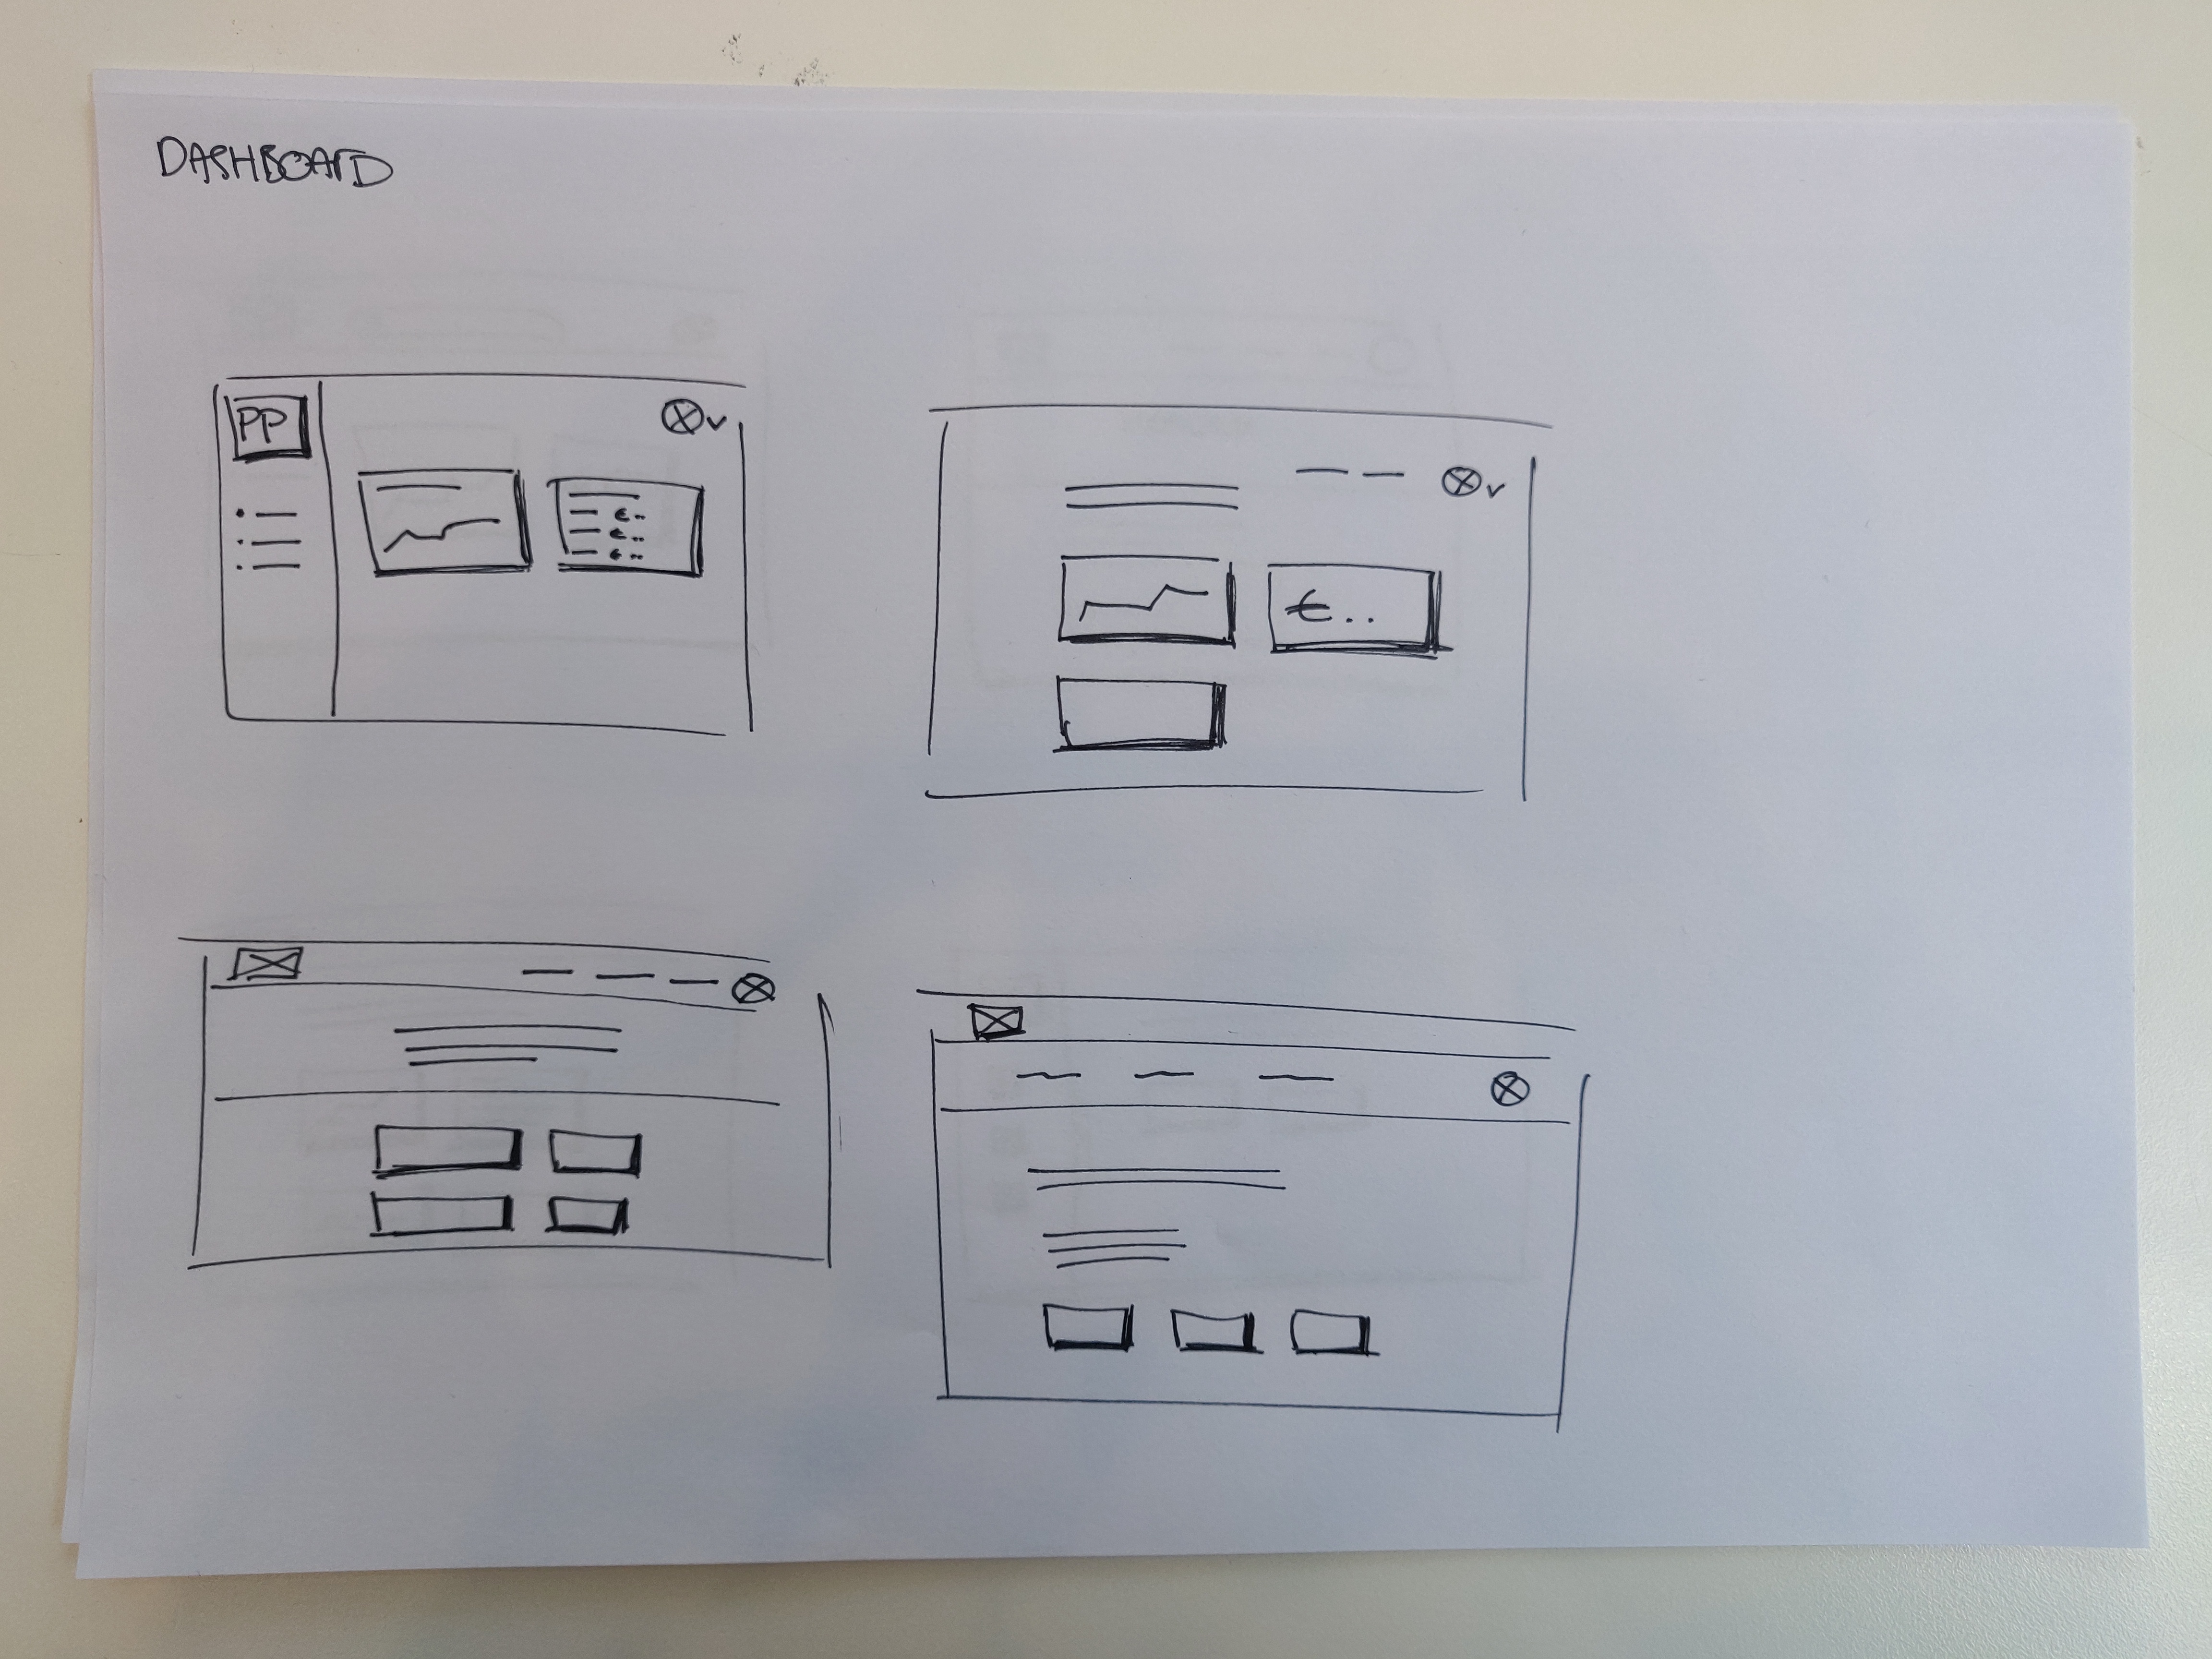 DASHBOARD
PP
€..
€..
€..
€..